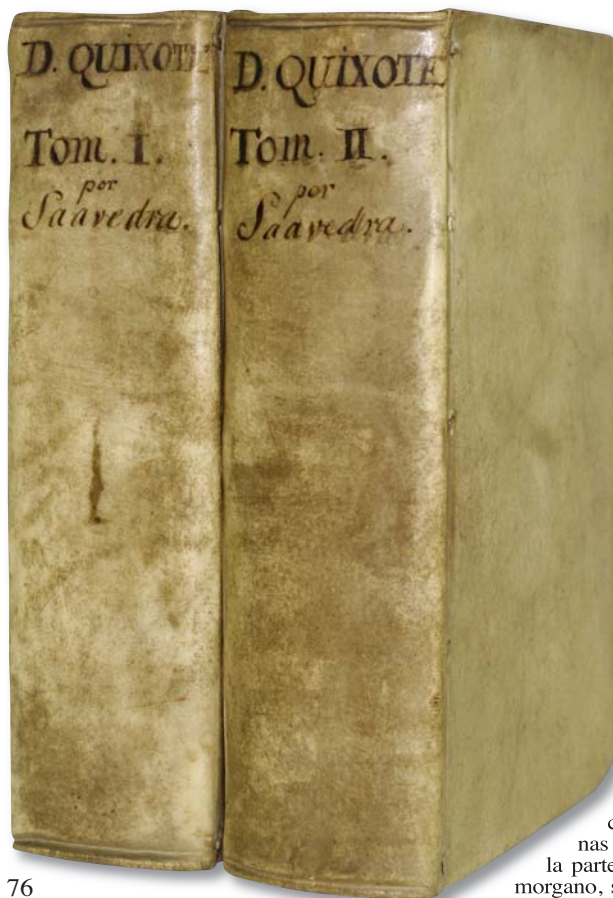 D. QUIXOTE
Tom. I.
por
Saavedra.
D. QUIXOTE
Tom. II.
por
Saavedra.
nas
la parte
morgano, s
76